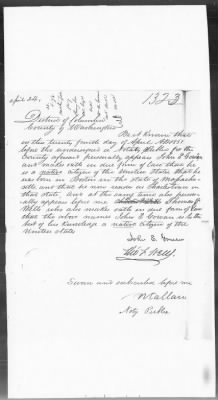 April 24,
1323
District of Columbia
County of Washington
Be it Known that
on this twenty fourth day of April AD 1851
before the undersigned a Notary Public for the
County aforesaid personally appears John E Gowen
and makes oath in due form of law that he
is a native citizen of the United States that he
was born in Boston in the State of Massachu
setts and that he now resides in Charlestown in
that State and at the same time also person
ally appears before me Thomas F
Wells who also makes oath in due form of law
that the above named John E Gowen is to the
best of his knowledge a native citizen of the
United States
John E. Gowen
Thos F. Wells
Sworn and subscribed before me
N Callan
Noty Public